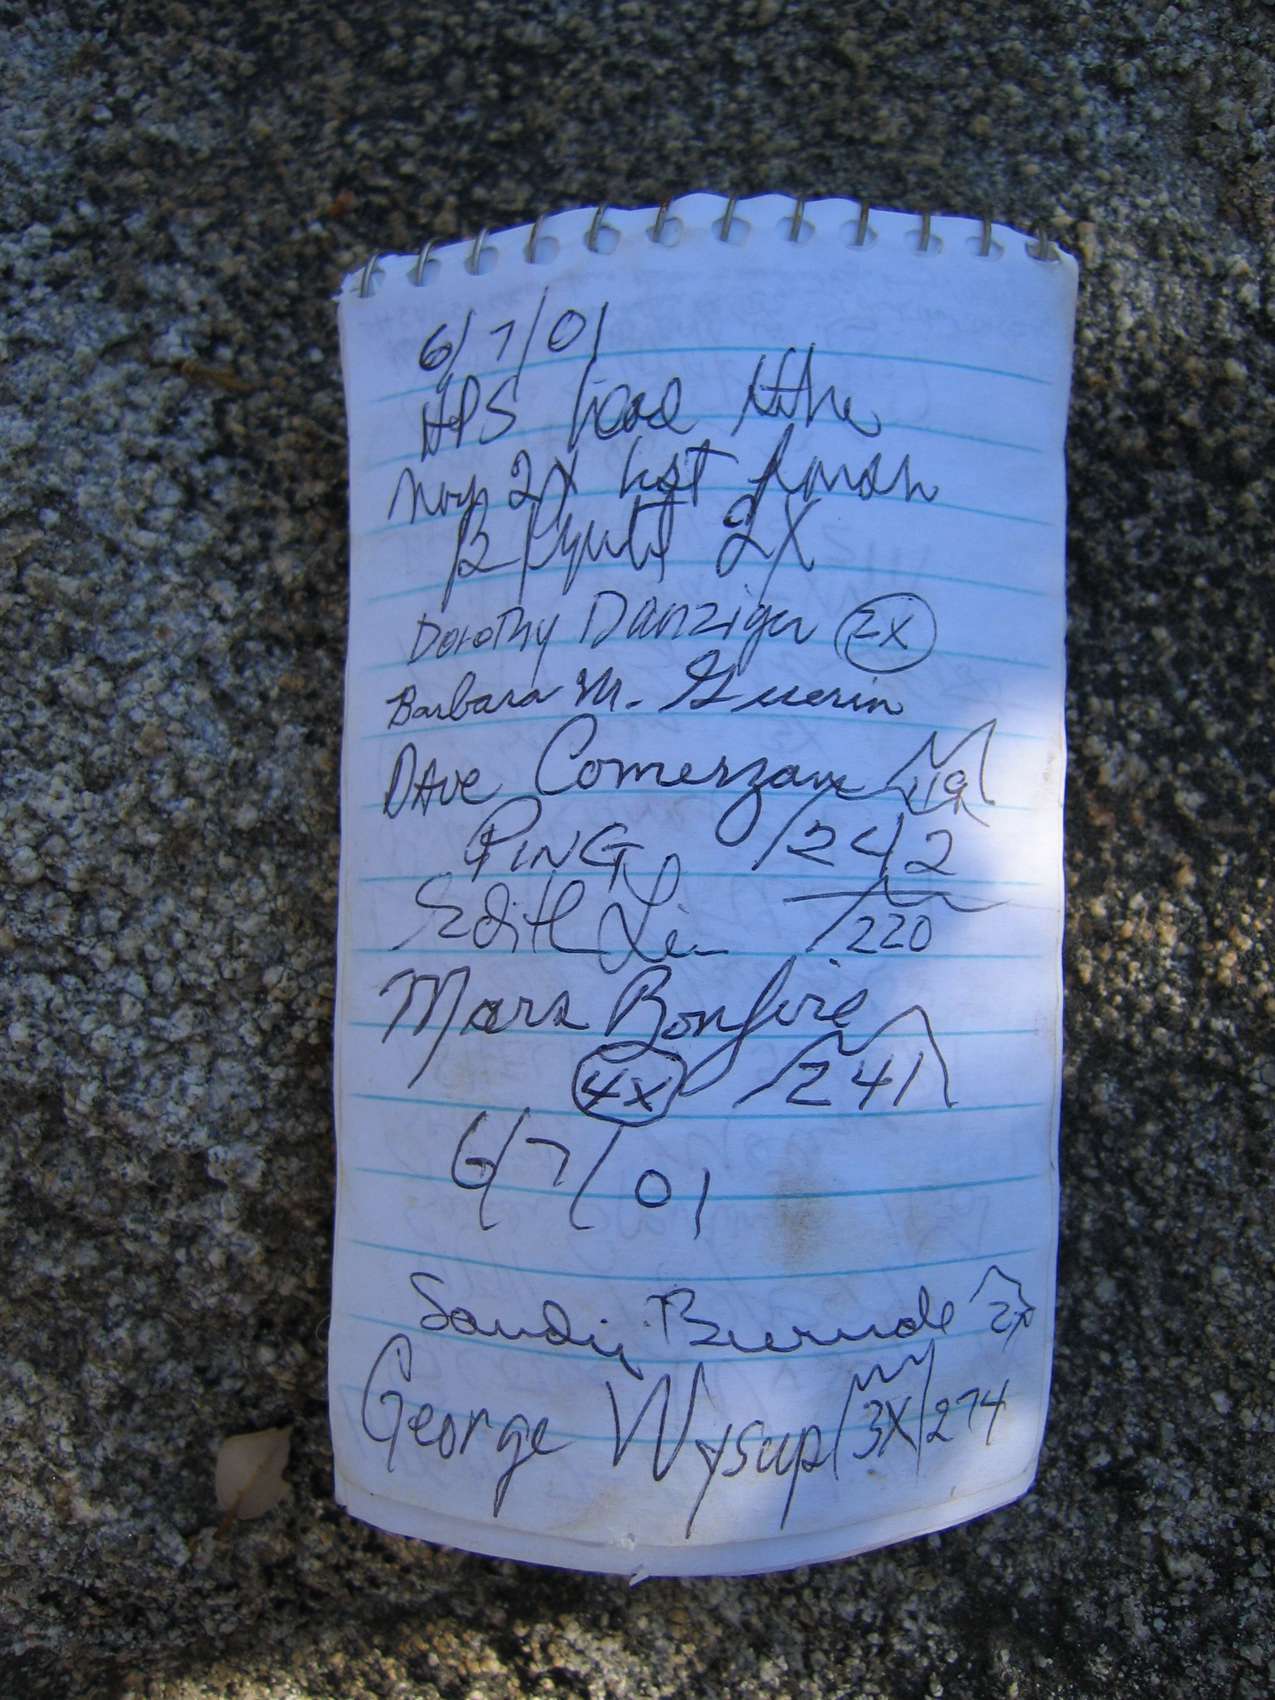 6/7/01
HPS
2X list
B 2X
Dorothy Danziger 2X
Barbara M. Guerin
DAve Comerzan 119
PiNG 242
Edith Liu 220
Mars Bonfire
4X 241
6/7/01
Sandy Burnside 2x
George Wysup 3X 274